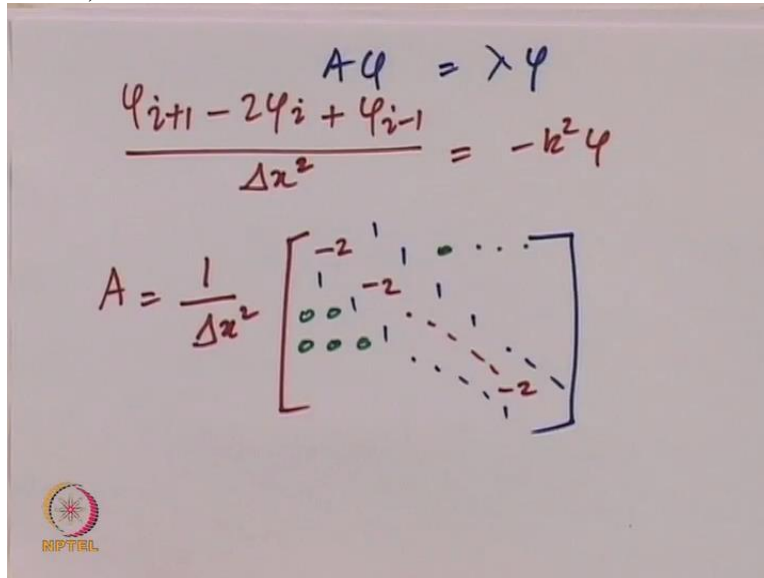 Aφ = λφ
φi+1 − 2φi + φi−1
Δx² = −k²φ
A = 1/Δx² [ −2 1 1 0 · · ·
1 −2 1
0 0 1 · 1
0 0 0 1
−2
1 ]
NPTEL